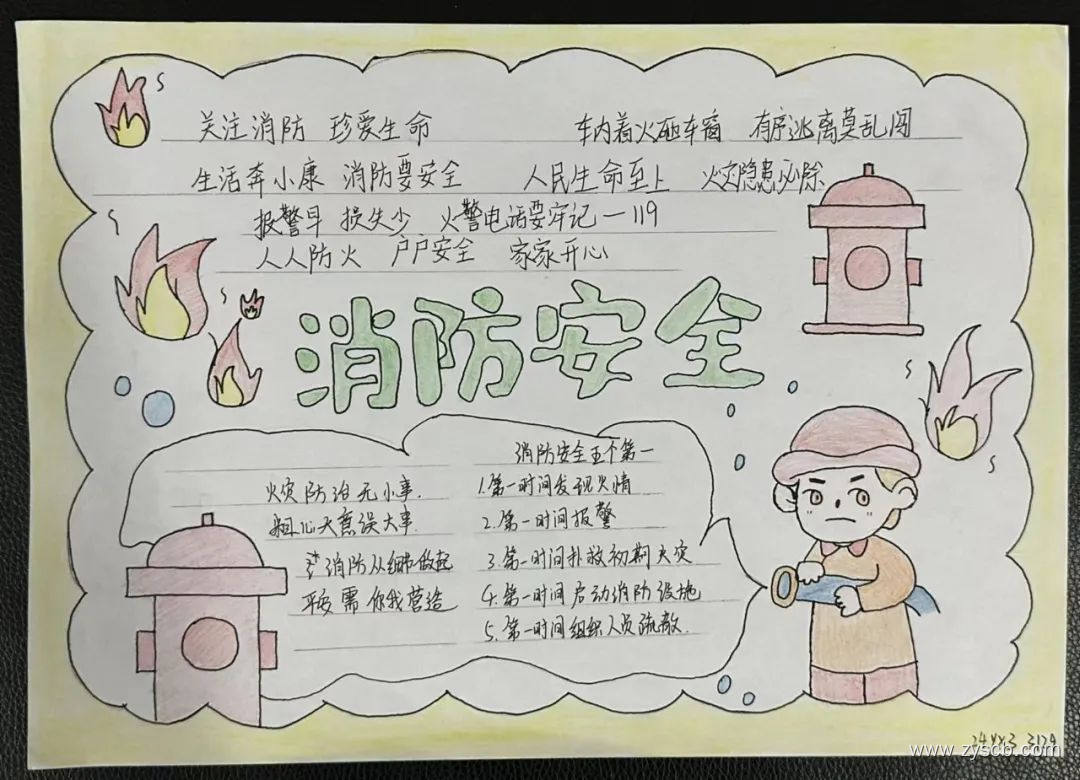 关注消防 珍爱生命 车内着火砸车窗 有序逃离莫乱闯
生活奔小康 消防要安全 人民生命至上 火灾隐患必除
报警早 损失少 火警电话要牢记一119
人人防火 户户安全 家家开心
消防安全
火灾防治无小事.
粗心大意误大事.
消防从细节做起
平安需你我营造
消防安全五个第一
1.第一时间发现火情
2.第一时间报警
3.第一时间扑救初期火灾
4.第一时间启动消防设施
5.第一时间组织人员疏散.
www.zyscb.com